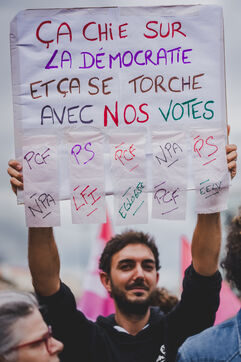 ÇA CHIE SUR
LA DÉMOCRATIE
ET ÇA SE TORCHE
AVEC NOS VOTES
PCF PS PCF NPA PS
NPA LFI ECOLOGIE PCF EELV